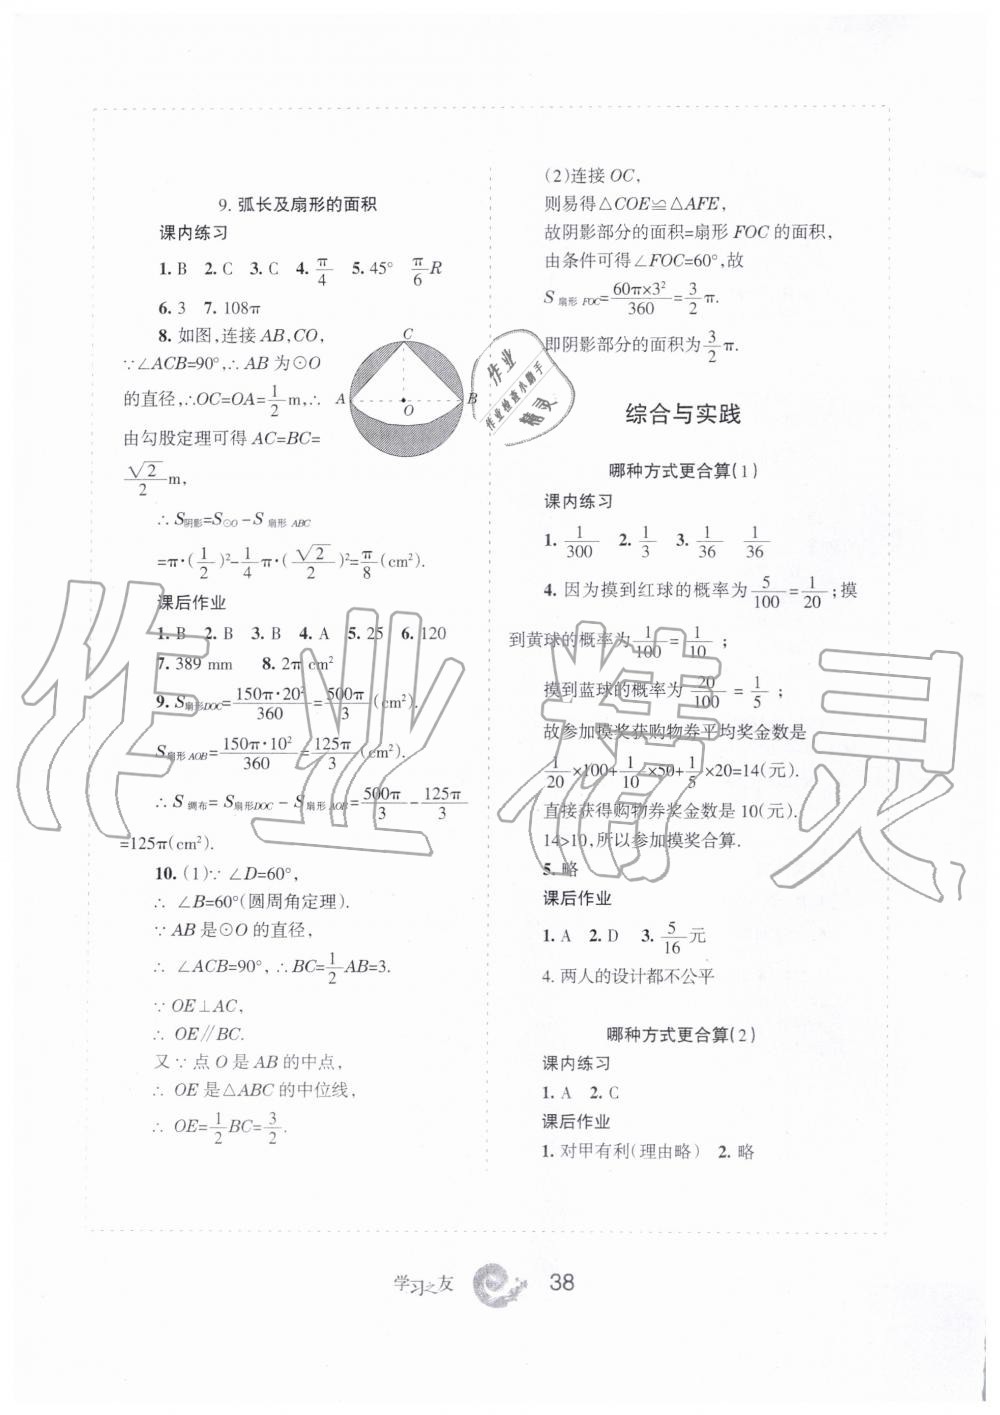 9. 弧长及扇形的面积
课内练习
1. B 2. C 3. C 4. π/4 5. 45° π/6 R
6. 3 7. 108π
8. 如图,连接 AB,CO,
∵∠ACB=90°,∴ AB 为⊙O
的直径,∴OC=OA=1/2 m,∴
由勾股定理可得 AC=BC=
√2/2 m,
C
A
O
B
∴ S阴影=S⊙O-S扇形 ABC
=π·(1/2)²-1/4 π·(√2/2)²=π/8(cm²).
课后作业
1. B 2. B 3. B 4. A 5. 25 6. 120
7. 389 mm 8. 2π cm²
9. S扇形DOC=150π·20²/360=500π/3(cm²).
S扇形 AOB=150π·10²/360=125π/3(cm²).
∴ S 绸布= S扇形DOC - S扇形 AOB=500π/3-125π/3
=125π(cm²).
10. (1)∵ ∠D=60°,
∴ ∠B=60°(圆周角定理).
∵ AB 是⊙O 的直径,
∴ ∠ACB=90°, ∴BC=1/2 AB=3.
∵ OE⊥AC,
∴ OE∥BC.
又∵ 点 O 是 AB 的中点,
∴ OE 是△ABC 的中位线,
∴ OE=1/2 BC=3/2.
(2)连接 OC,
则易得△COE≌△AFE,
故阴影部分的面积=扇形 FOC 的面积,
由条件可得∠FOC=60°,故
S扇形 FOC=60π×3²/360=3/2 π.
即阴影部分的面积为3/2 π.
综合与实践
哪种方式更合算(1)
课内练习
1. 1/300 2. 1/3 3. 1/36 1/36
4. 因为摸到红球的概率为5/100=1/20;摸
到黄球的概率为1/100=1/10;
摸到蓝球的概率为20/100=1/5;
故参加摸奖获购物券平均奖金数是
1/20×100+1/10×50+1/5×20=14(元).
直接获得购物券奖金数是 10(元).
14>10,所以参加摸奖合算.
5. 略
课后作业
1. A 2. D 3. 5/16元
4. 两人的设计都不公平
哪种方式更合算(2)
课内练习
1. A 2. C
课后作业
1. 对甲有利(理由略) 2. 略
学习之友 38
作业
作业检查小助手
精灵
作业精灵